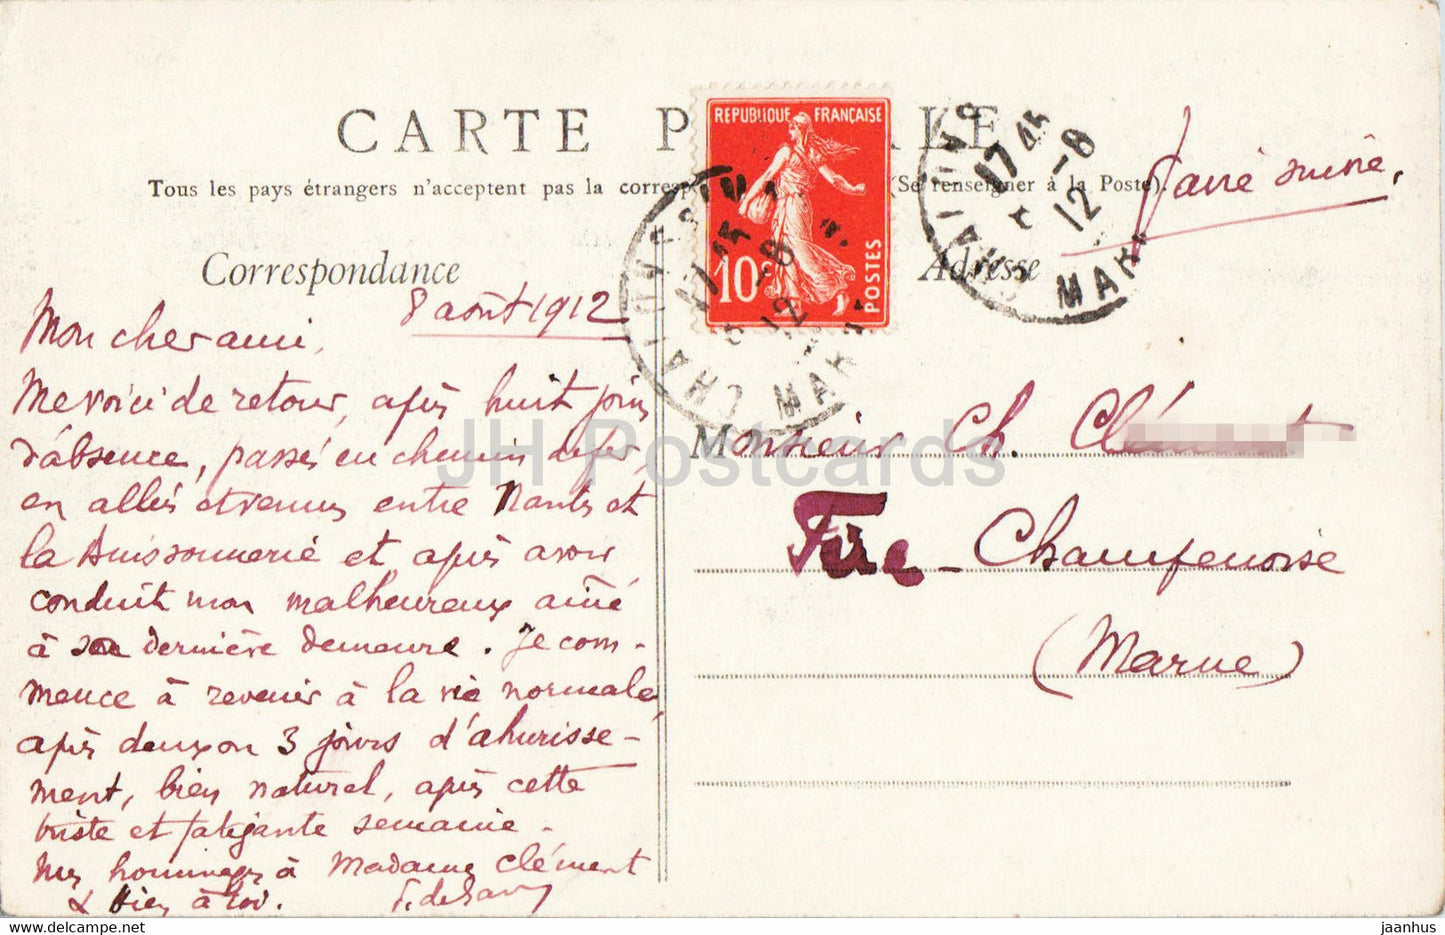 CARTE P LE
Tous les pays étrangers n'acceptent pas la corresp (Se renseigner à la Poste).
faire suivre.
REPUBLIQUE FRANÇAISE
10c POSTES
17 45
8 -8
12
MARNE
17 45
-8
12
MARNE
Correspondance
Adresse
8 août 1912
Mon cher ami,
Me voici de retour, après huit jours
d'absence, passés en chemin de fer,
en allées et venues entre Nantes et
la Buissonnerie et après avoir
conduit mon malheureux aîné
à sa dernière demeure. Je com-
mence à revenir à la vie normale,
après deux ou 3 jours d'ahurisse-
ment, bien naturel, après cette
triste et fatigante semaine.
Mes hommages à Madame Clément
& bien à toi.
Monsieur Ch. Clément
Fère-Champenoise
(Marne)
JH Postcards
jaanhus